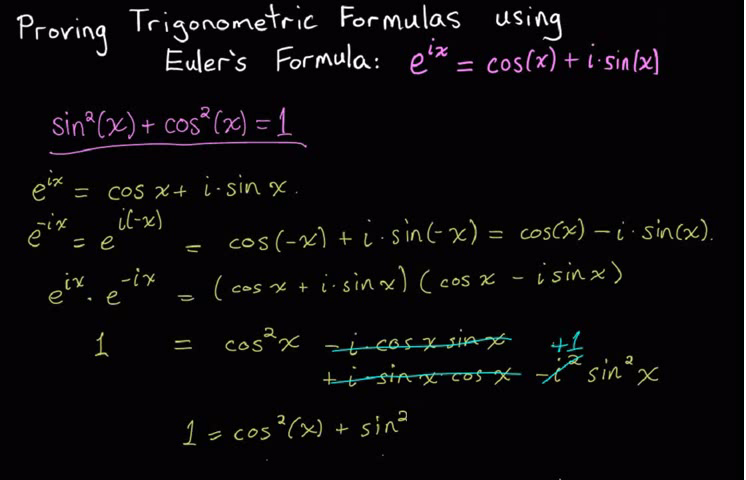 Proving Trigonometric Formulas using
Euler's Formula: e^{ix} = cos(x) + i·sin(x)
sin²(x) + cos²(x) = 1
e^{ix} = cos x + i·sin x.
e^{-ix} = e^{i(-x)} = cos(-x) + i·sin(-x) = cos(x) - i·sin(x).
e^{ix} · e^{-ix} = (cos x + i·sin x)(cos x - i sin x)
1 = cos²x - i·cos x sin x +1
+ i·sin x·cos x - i² sin²x
1 = cos²(x) + sin²